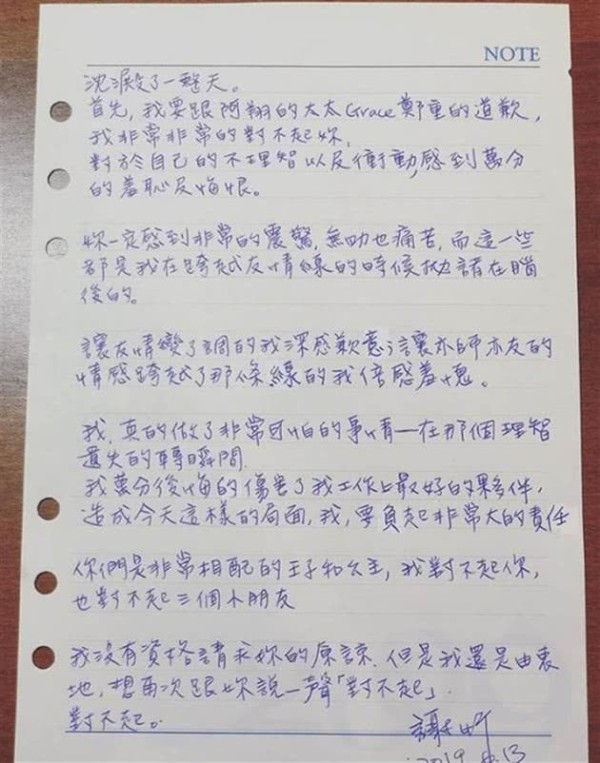 NOTE
沈澱了一整天。
首先，我要跟阿翔的太太Grace鄭重的道歉，
我非常非常的對不起妳，
對於自己的不理智以及衝動感到萬分
的羞恥及悔恨。
妳一定感到非常的震驚，無助也痛苦，而這一些
都是我在跨越友情線的時候拋諸在腦
後的。
讓友情變了調的我深感歉意；讓亦師亦友的
情感跨越了那條線的我倍感羞愧。
我，真的做了非常可怕的事情—在那個理智
遺失的轉瞬間。
我萬分後悔的傷害了我工作上最好的夥伴，
造成今天這樣的局面，我，要負起非常大的責任
你們是非常相配的王子和公主，我對不起你，
也對不起三個小朋友
我沒有資格請求妳的原諒，但是我還是由衷
地，想再次跟妳說一聲「對不起」。
對不起。
2019